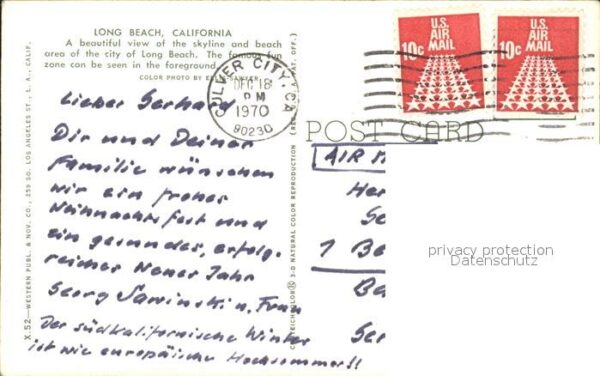 LONG BEACH, CALIFORNIA
A beautiful view of the skyline and beach
area of the city of Long Beach. The famous fun
zone can be seen in the foreground.
COLOR PHOTO BY
U.S.
AIR
MAIL
10c
U.S.
AIR
MAIL
10c
CULVER CITY, CA
DEC 18
PM
1970
90230
POST CARD
Lieber Gerhard
Dir und Deiner
Familie wünschen
wir ein frohes
Weihnachtsfest und
ein gesundes, erfolg-
reicher Neuer Jahr
Georg Sawinski u. Frau
Der südkalifornische Winter
ist wie europäische Hochsommer!!
AIR M
Her
Se
1 Be
Be
Ser
privacy protection
Datenschutz
X.52—WESTERN PUBL. & NOV. CO., 259 SO. LOS ANGELES ST., L. A., CALIF.
3-D NATURAL COLOR REPRODUCTION